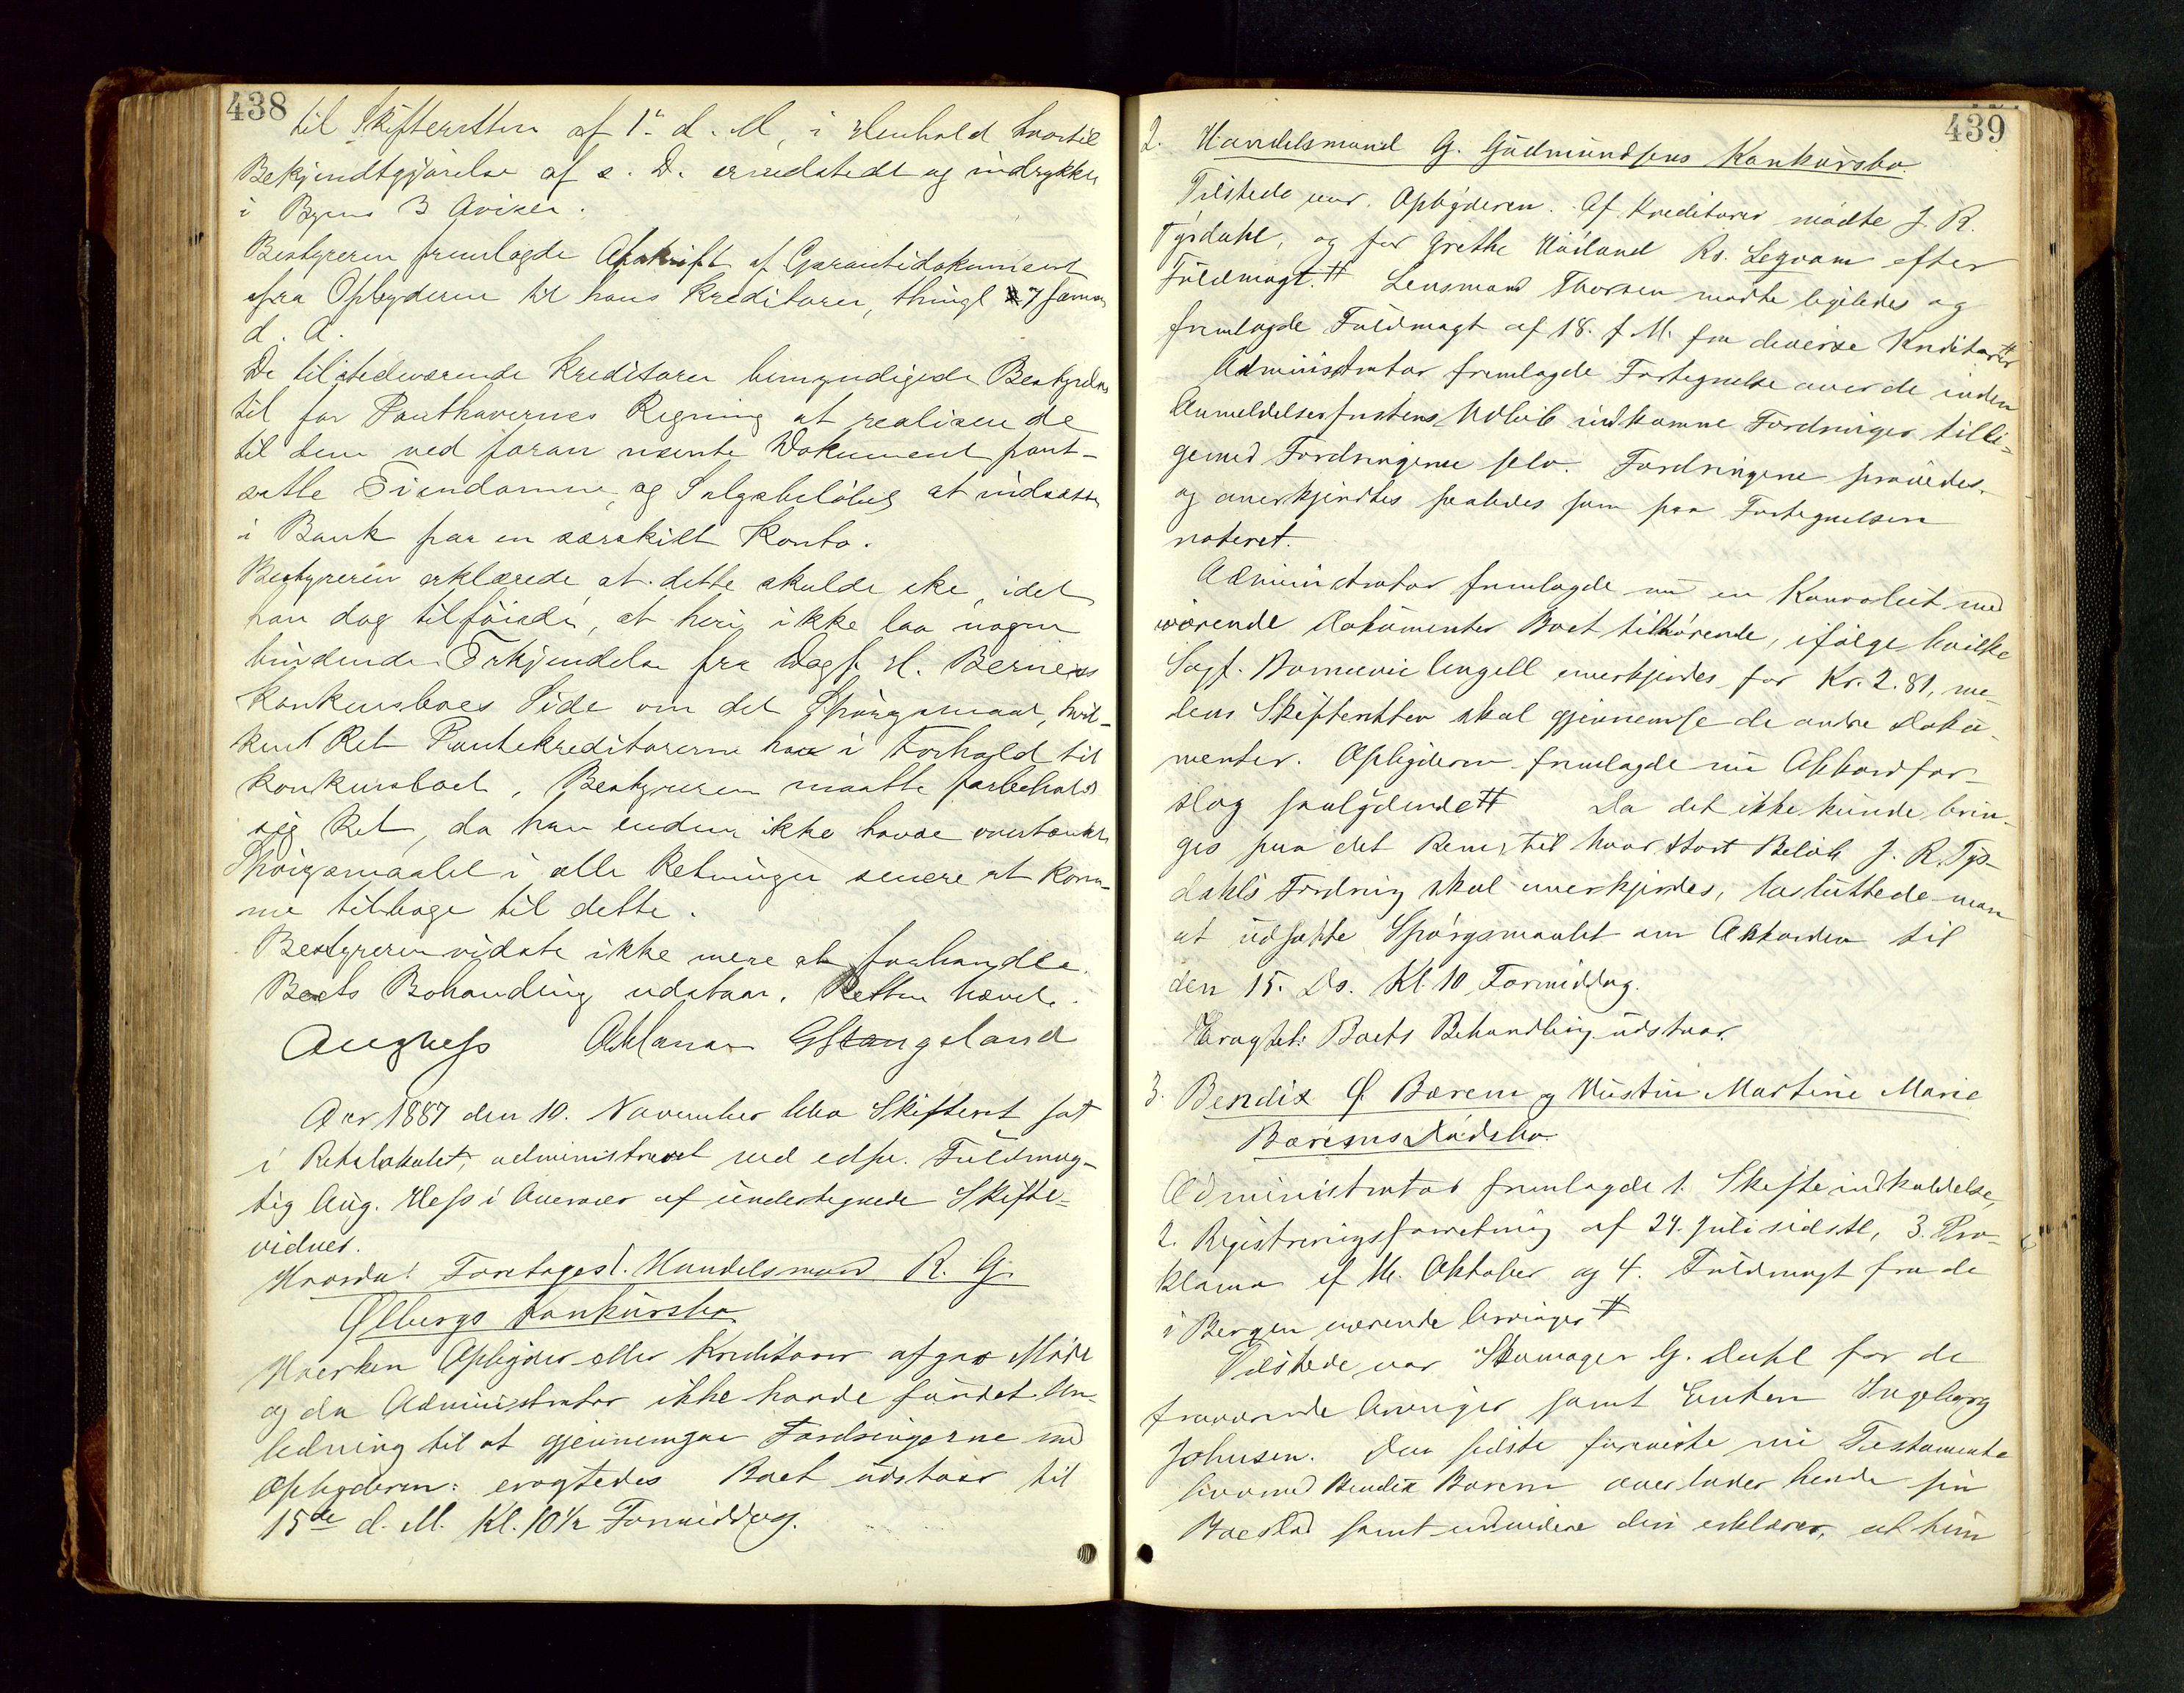 438
til Skifteretten af 1ste d. M, i Henhold hvortil
Bekjendtgjørelse af s. D. er udstedt og indrykket
i Byens 3 Aviser.
Bestyreren fremlagde Afskrift af Garantidokument
fra Opbyderen til hans Kreditorer, thingl 7 Januar
d. A.
De tilstedeværende Kreditorer bemyndigede Bestyrelsen
til for Panthavernes Regning at realisere de
til dem ved foran nævnte Dokument pant-
satte Eiendomme, og Salgsbeløbet at indsætte
i Bank paa en særskilt Konto.
Bestyreren erklærede at dette skulde ske, idet
han dog tilføiede, at heri ikke laa nogen
bindende Erkjendelse fra Dagf. H. Berners
Konkursboes Side om det Spørgsmaal, hvil-
ken Ret Pantekreditorerne har i Forhold til
Konkursboet, Bestyreren maatte forbeholde
sig Ret, da han endnu ikke havde overtænkt
Spørgsmaalet i alle Retninger senere at kom-
me tilbage til dette.
Bestyreren vidste ikke mere at forhandle.
Boets Behandling udstaar. Retten hævet.
Aug Hess GStangeland
Aar 1887 den 10. November blev Skifteret sat
i Retslokalet, administreret ved edsv. Fuldmæg-
tig Aug. Hess i Overvær af undertegnede Skifte-
vidner.
Hvorda: Foretoges 1. Handelsmand R. G.
Ølbergs Konkursbo
Hverken Opbyder eller Kreditorer afgav Møde
og da Administrator ikke havde fundet An-
ledning til at gjennemgaa Fordringerne med
Opbyderen: eragtedes Boet udstaar til
15de d. M. Kl. 10½ Formiddag.
439
2. Handelsmand G. Gudmundsens Konkursbo.
Tilstede var Opbyderen. Af Kreditorer mødte J. R.
Tysdahl, og for Grethe Høiland Rs. Legvam efter
Fuldmagt. # Lensmand Thorsen mødte ligeledes og
fremlagde Fuldmagt af 18. f. M. fra diverse Kreditorer #
Administrator fremlagde Fortegnelse over de inden
Anmeldelsesfristens Udløb indkomne Fordringer tilli-
gemed Fordringerne selv. Fordringerne prøvedes
og anerkjendtes saaledes som paa Fortegnelsen
noteret.
Administrator fremlagde nu en Konvolut med
værende Dokumenter Boet tilhørende, ifølge hvilke
Sagf. Engell anerkjendes for Kr. 2.81, me-
dens Skifteretten skal gjennemse de andre Doku-
menter. Opbyderen fremlagde nu Akkordfor-
slag saalydende # Da det ikke kunde brin-
ges paa det Rene, til hvor stort Beløb J. R. Tys-
dahls Fordring skal anerkjendes, besluttede man
at udsætte Spørgsmaalet om Akkorden til
den 15. Ds. Kl. 10 Formiddag.
Eragtet: Boets Behandling udstaar.
3. Bendix Ø. Børem og Hustru Martine Marie
Børems Dødsbo.
Administrator fremlagde 1. Skifteindkaldelse,
2. Registreringsforretning af 24. Juli sidstl, 3. Pro-
klama af 14. Oktober og 4. Fuldmagt fra de
i Bergen værende Arvinger #
Tilstede var Skomager G. Dahl for de
fraværende Arvinger samt Enken Ingeborg
Johnsen. Den sidste foreviste nu Testamente
hvorved Bendix Børem overlader hende sin
Boeslod samt endvidere den erklærer, at hun